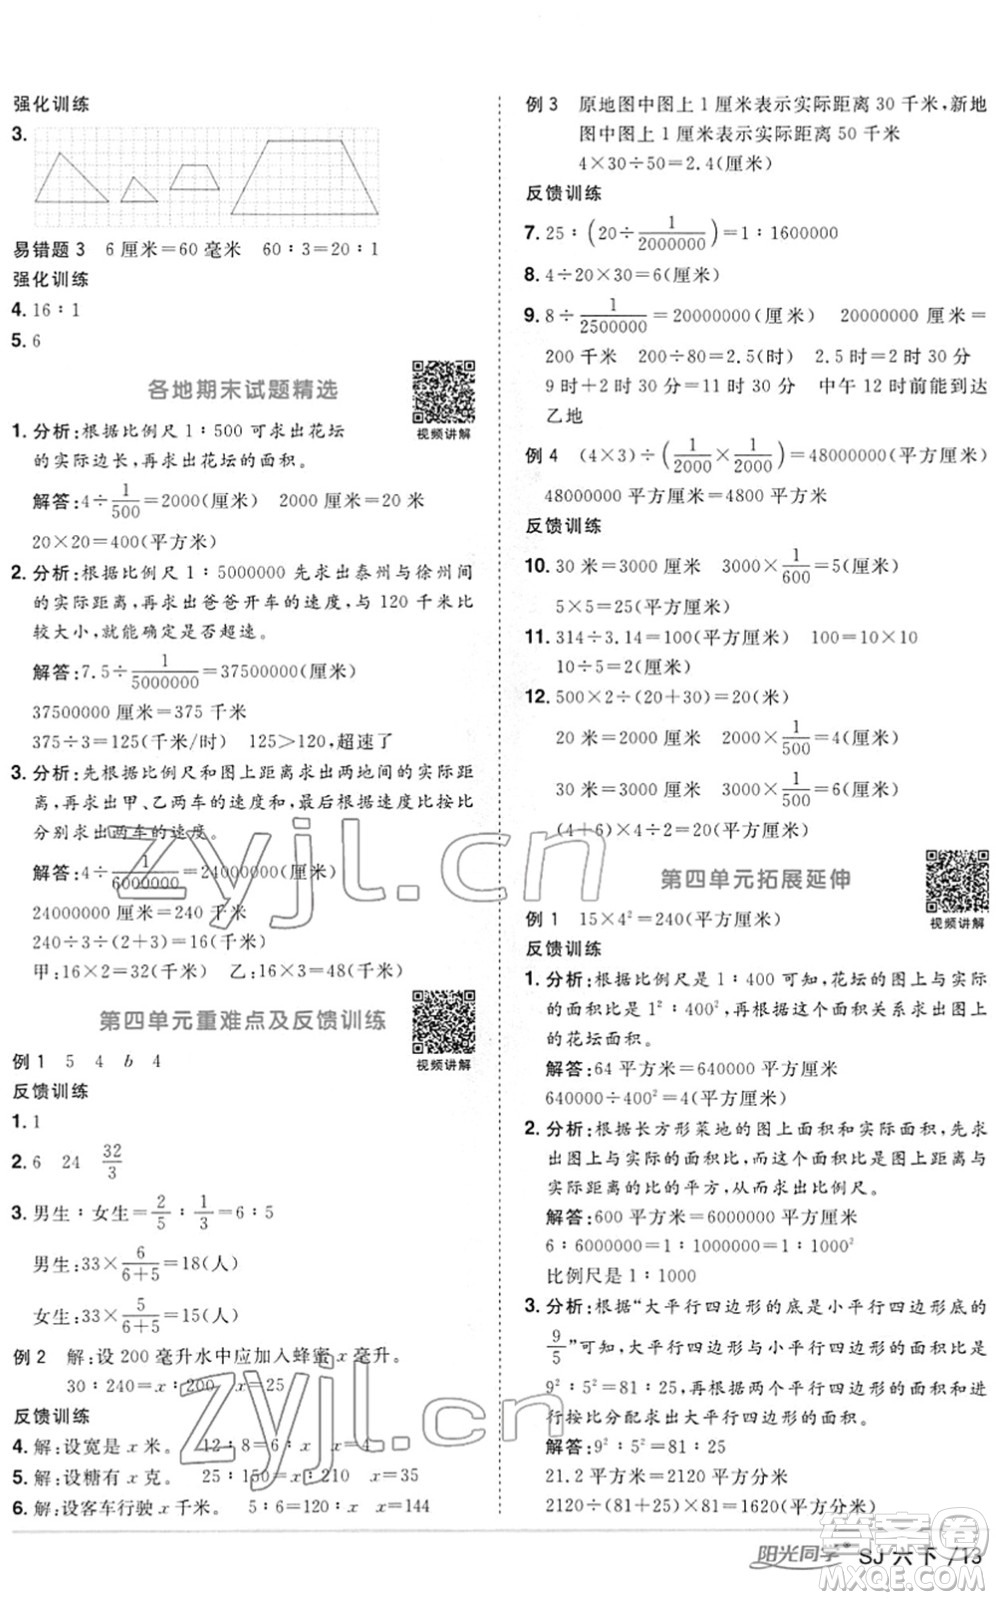 强化训练
3.
易错题 3 6 厘米=60 毫米 60∶3=20∶1
强化训练
4. 16∶1
5. 6
各地期末试题精选
视频讲解
1. 分析:根据比例尺 1∶500 可求出花坛
的实际边长,再求出花坛的面积。
解答:4÷1/500=2000(厘米) 2000 厘米=20 米
20×20=400(平方米)
2. 分析:根据比例尺 1∶5000000 先求出泰州与徐州间
的实际距离,再求出爸爸开车的速度,与 120 千米比
较大小,就能确定是否超速。
解答:7.5÷1/5000000=37500000(厘米)
37500000 厘米=375 千米
375÷3=125(千米/时) 125>120,超速了
3. 分析:先根据比例尺和图上距离求出两地间的实际距
离,再求出甲、乙两车的速度和,最后根据速度比
分别求出两车的速度。
解答:4÷1/6000000=24000000(厘米)
24000000 厘米=240 千米
240÷3÷(2+3)=16(千米)
甲:16×2=32(千米) 乙:16×3=48(千米)
第四单元重难点及反馈训练
视频讲解
例 1 5 4 b 4
反馈训练
1. 1
2. 6 24 32/3
3. 男生∶女生=2/5∶1/3=6∶5
男生:33×6/(6+5)=18(人)
女生:33×5/(6+5)=15(人)
例 2 解:设 200 毫升水中应加入蜂蜜 x 毫升。
30∶240=x∶200 x=25
反馈训练
4. 解:设宽是 x 米。 12∶8=6∶x x=4
5. 解:设糖有 x 克。 25∶150=x∶210 x=35
6. 解:设客车行驶 x 千米。 5∶6=120∶x x=144
例 3 原地图中图上 1 厘米表示实际距离 30 千米,新地
图中图上 1 厘米表示实际距离 50 千米
4×30÷50=2.4(厘米)
反馈训练
7. 25∶(20÷1/2000000)=1∶1600000
8. 4÷20×30=6(厘米)
9. 8÷1/2500000=20000000(厘米) 20000000 厘米=
200 千米 200÷80=2.5(时) 2.5 时=2 时 30 分
9 时+2 时 30 分=11 时 30 分 中午 12 时前能到达
乙地
例 4 (4×3)÷(1/2000×1/2000)=48000000(平方厘米)
48000000 平方厘米=4800 平方米
反馈训练
10. 30 米=3000 厘米 3000×1/600=5(厘米)
5×5=25(平方厘米)
11. 314÷3.14=100(平方厘米) 100=10×10
10÷5=2(厘米)
12. 500×2÷(20+30)=20(米)
20 米=2000 厘米 2000×1/500=4(厘米)
30 米=3000 厘米 3000×1/500=6(厘米)
(4+6)×4÷2=20(平方厘米)
第四单元拓展延伸
视频讲解
例 1 15×4²=240(平方厘米)
反馈训练
1. 分析:根据比例尺是 1∶400 可知,花坛的图上与实际
的面积比是 1²∶400²,再根据实际的花坛面积求出图上
的花坛面积。
解答:64 平方米=640000 平方厘米
640000÷400²=4(平方厘米)
2. 分析:根据长方形菜地的图上面积和实际面积,先求
出图上与实际的面积比,而实际的面积比是图上距离与
实际距离的比的平方,从而求出比例尺。
解答:600 平方米=6000000 平方厘米
6∶6000000=1∶1000000=1∶1000²
比例尺是 1∶1000
3. 分析:根据“大平行四边形的底是小平行四边形底的
9/5”可知,大平行四边形与小平行四边形的面积比是
9²∶5²=81∶25,再根据大、小平行四边形的面积和进行
按比分配求出大平行四边形的面积。
解答:9²∶5²=81∶25
21.2 平方米=2120 平方分米
2120÷(81+25)×81=1620(平方分米)
阳光同学 SJ 六下 /13
zyjl.cn
zyjl.cn
答案圈
MXQE.COM